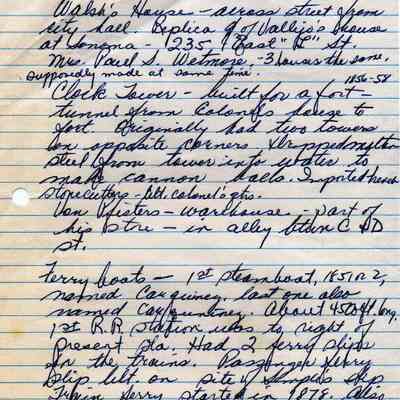 Walsh's House - across street from
city hall. Replica of Vallejo's house
at Sonoma - 235 East "L" St.
Mrs. Paul S. Wetmore, - 3 houses the same,
supposedly made at same time.
1856-58
Clock Tower - built for a fort -
tunnel from Colonel's house to
fort. Originally had two towers
on opposite corners. Dropped molten
steel from tower into water to
make cannon balls. Imported French
stonecutters - blt. colonel's qtrs.
Von Pfisters - warehouse - part of
his store - in alley btwn C & D
st.
Ferry boats - 1st steamboat, 1851 or 2,
named Carquinez, last one also
named Carquinez. About 450 ft. long.
1st R.R. Station was to right of
present sta. Had 2 ferry slips
for the trains. Passenger ferry
slip blt. on site of
Train ferry started in 1878. Also